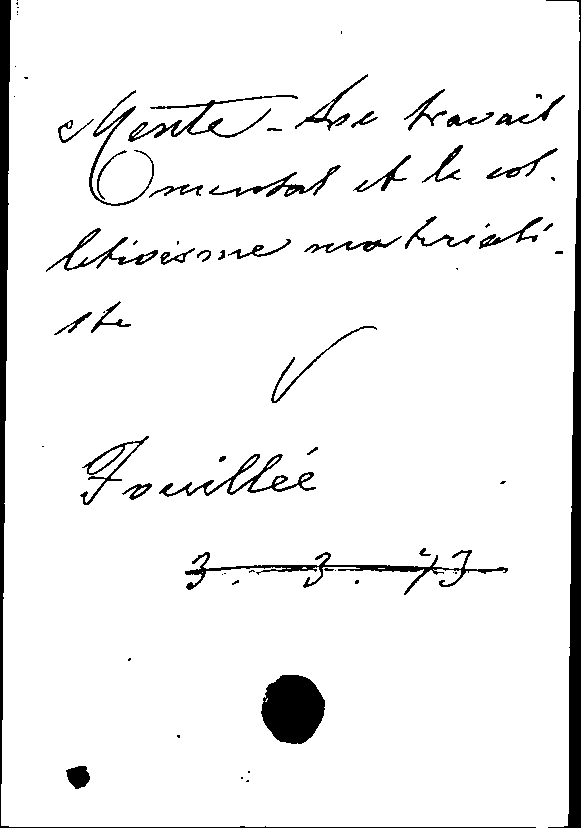 Mente - Le travail
mental et le col-
lectivisme matériali-
ste
V
Fouillée
3. 3. 73